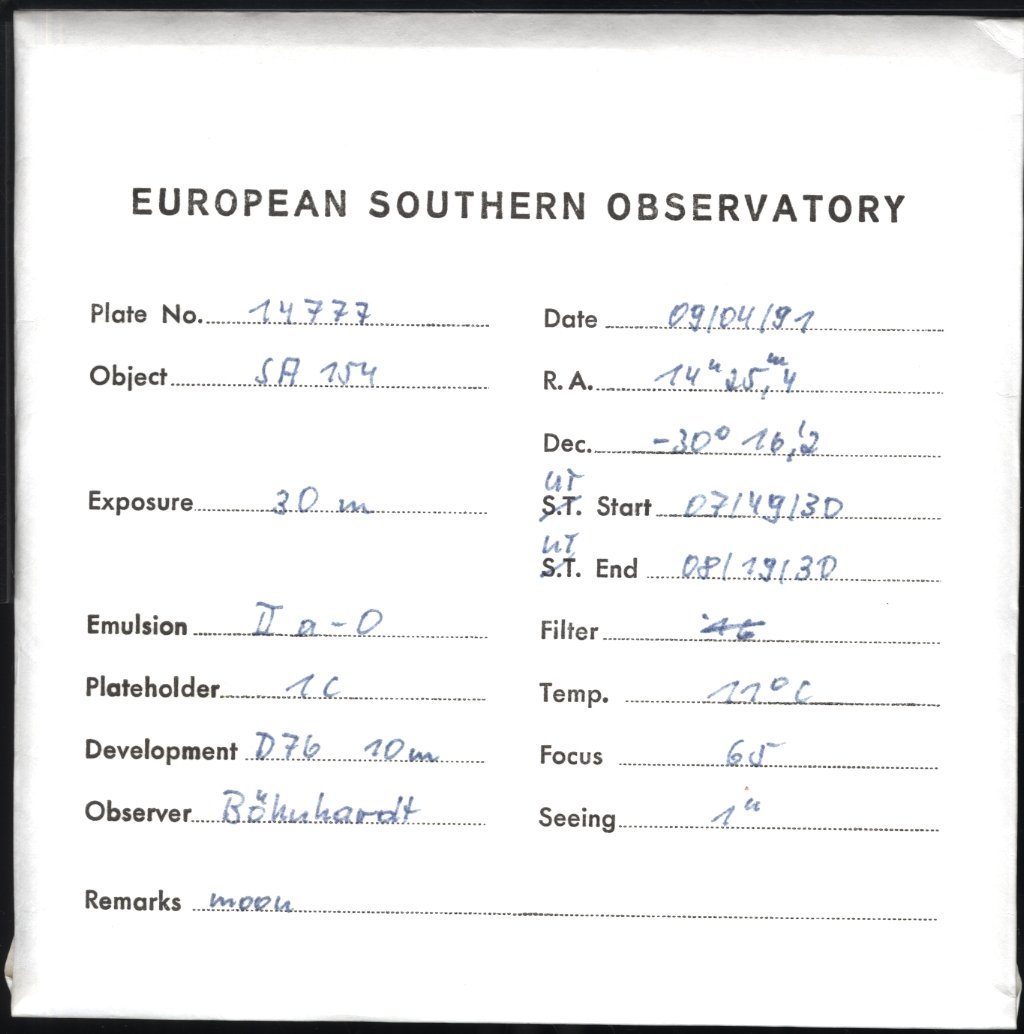 EUROPEAN SOUTHERN OBSERVATORY
Plate No. 14777 Date 09/04/91
Object SA 154 R.A. 14ʰ 25,ᵐ4
Dec. -30° 16,'2
UT
Exposure 30 m S.T. Start 07/49/30
UT
S.T. End 08/19/30
Emulsion II a-O Filter
Plateholder 1C Temp. 11°C
Development D76 10m Focus 65
Observer Böhnhardt Seeing 1"
Remarks moon